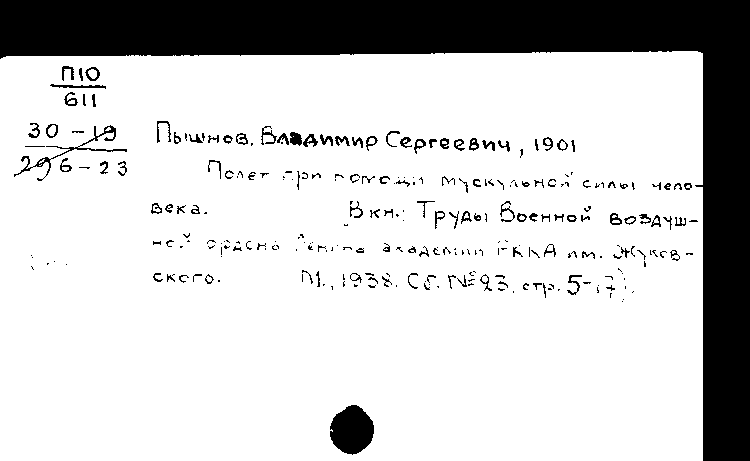 П10
611
30-19
296-23
Пышнов, Владимир Сергеевич, 1901
Полет при помощи мускульной силы чело-
века. В кн.: Труды Военной воздуш-
ной ордена Ленина академии РККА им. Жуков-
ского. М., 1938. Сб. №23, стр. 5-17).